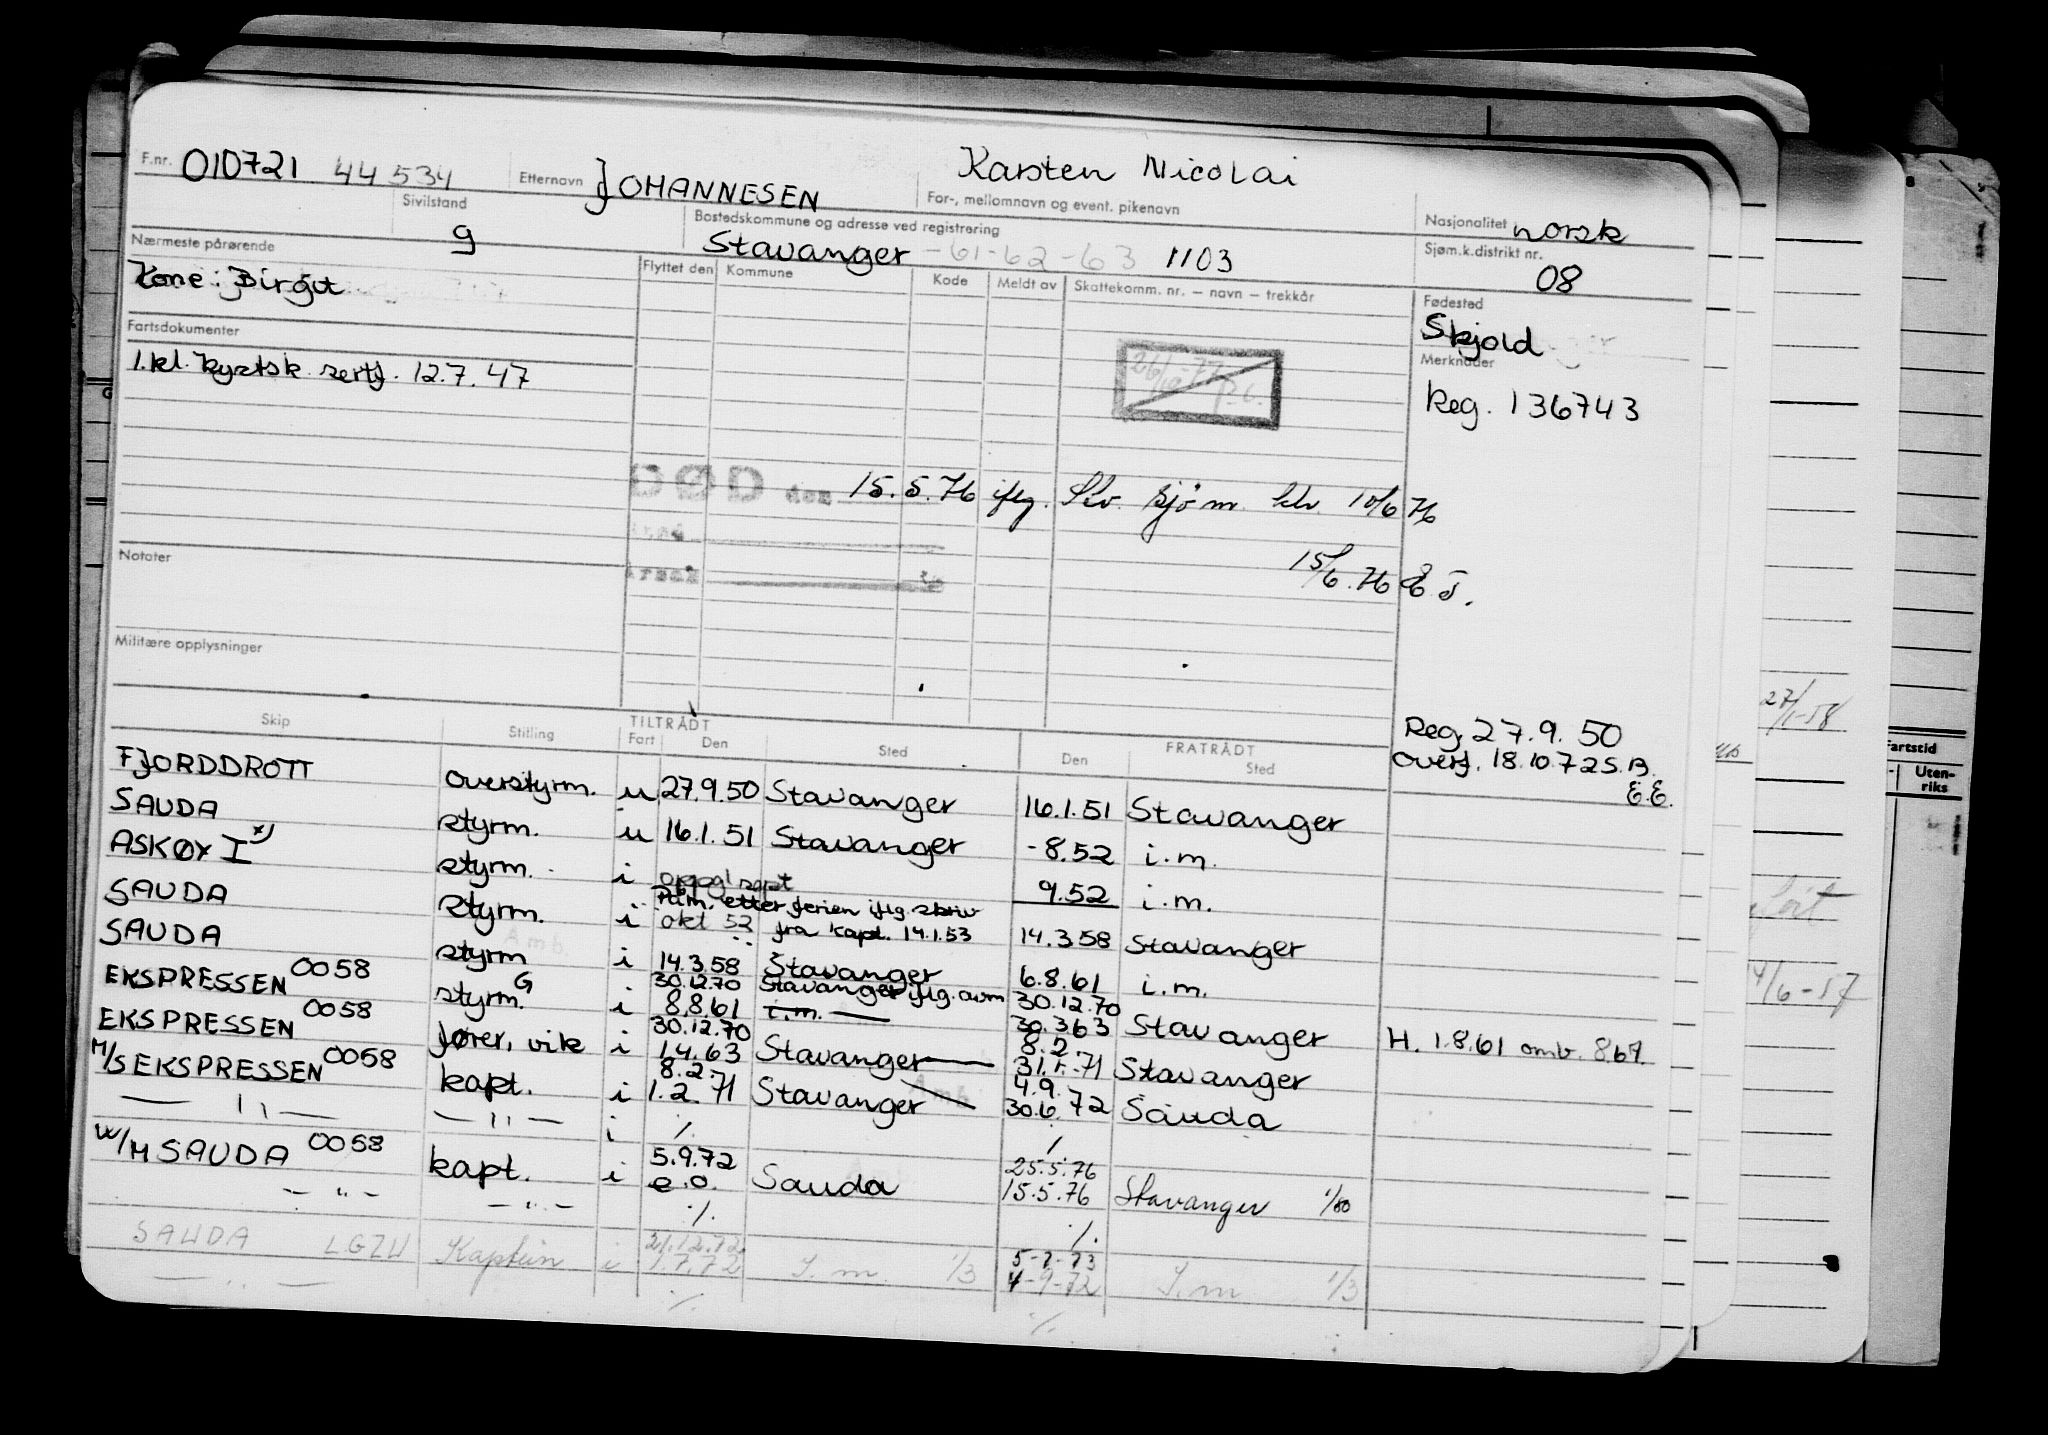 F.nr. 010721 44534 Etternavn JOHANNESEN Karsten Nicolai
For-, mellomnavn og event. pikenavn
Sivilstand g Bostedskommune og adresse ved registrering Nasjonalitet norsk
Stavanger -61-62-63 1103
Nærmeste pårørende Sjøm.k.distrikt nr. 08
Kone: Birgit
Flyttet den Kommune Kode Meldt av Skattekomm. nr. — navn — trekkår
Fødested
Skjold
Fartsdokumenter
Merknader
1. kl. kystsk. sertf. 12.7.47
Reg. 136743
DØD den 15.5.76 iflg. Stv. sjøm. ktr. 10/6 76
15/6.76
Notater
Militære opplysninger
Reg. 27.9.50
Overf. 18.10.72 S.B.
E.E.
Skip Stilling TILTRÅDT FRATRÅDT
Fart Den Sted Den Sted
FJORDDROTT overstyrm. u 27.9.50 Stavanger 16.1.51 Stavanger
SAUDA styrm. u 16.1.51 Stavanger -8.52 i.m.
ASKØY I x) styrm. i oppgl sept 9.52 i.m.
Påm. etter ferien iflg. skriv
SAUDA styrm. i okt 52 fra kapt. 14.1.53 14.3.58 Stavanger
SAUDA styrm i 14.3.58 Stavanger 6.8.61 i.m.
30.12.70 Stavanger iflg. avm 30.12.70
EKSPRESSEN 0058 styrm. G i 8.8.61 i.m. 30.3.63 Stavanger H. 1.8.61 omb. 8.67
30.12.70 8.2.
EKSPRESSEN 0058 fører, vik i 1.4.63 Stavanger 31.1.71 Stavanger
8.2. 4.9.
M/S EKSPRESSEN 0058 kapt. i 1.2.71 Stavanger 30.6.72 Sauda
— " — — " — i ./. /
5.9.72 25.5.76
M/M SAUDA 0058 kapt. i e.o. Sauda 15.5.76 Stavanger 1/80
— " — — " — ./. ./.
21.12.72 5-2-73
SAUDA LGZU Kaptein i 1.7.72 I.m. 1/3 4-9-72 I.m 1/3
— " — ./. ./.
27/1-58
Fartstid
Uten-
riks
4/6-57